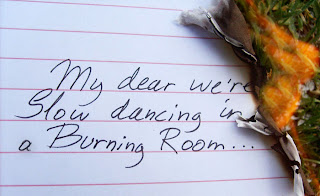 My dear we're
Slow dancing in
a Burning Room...